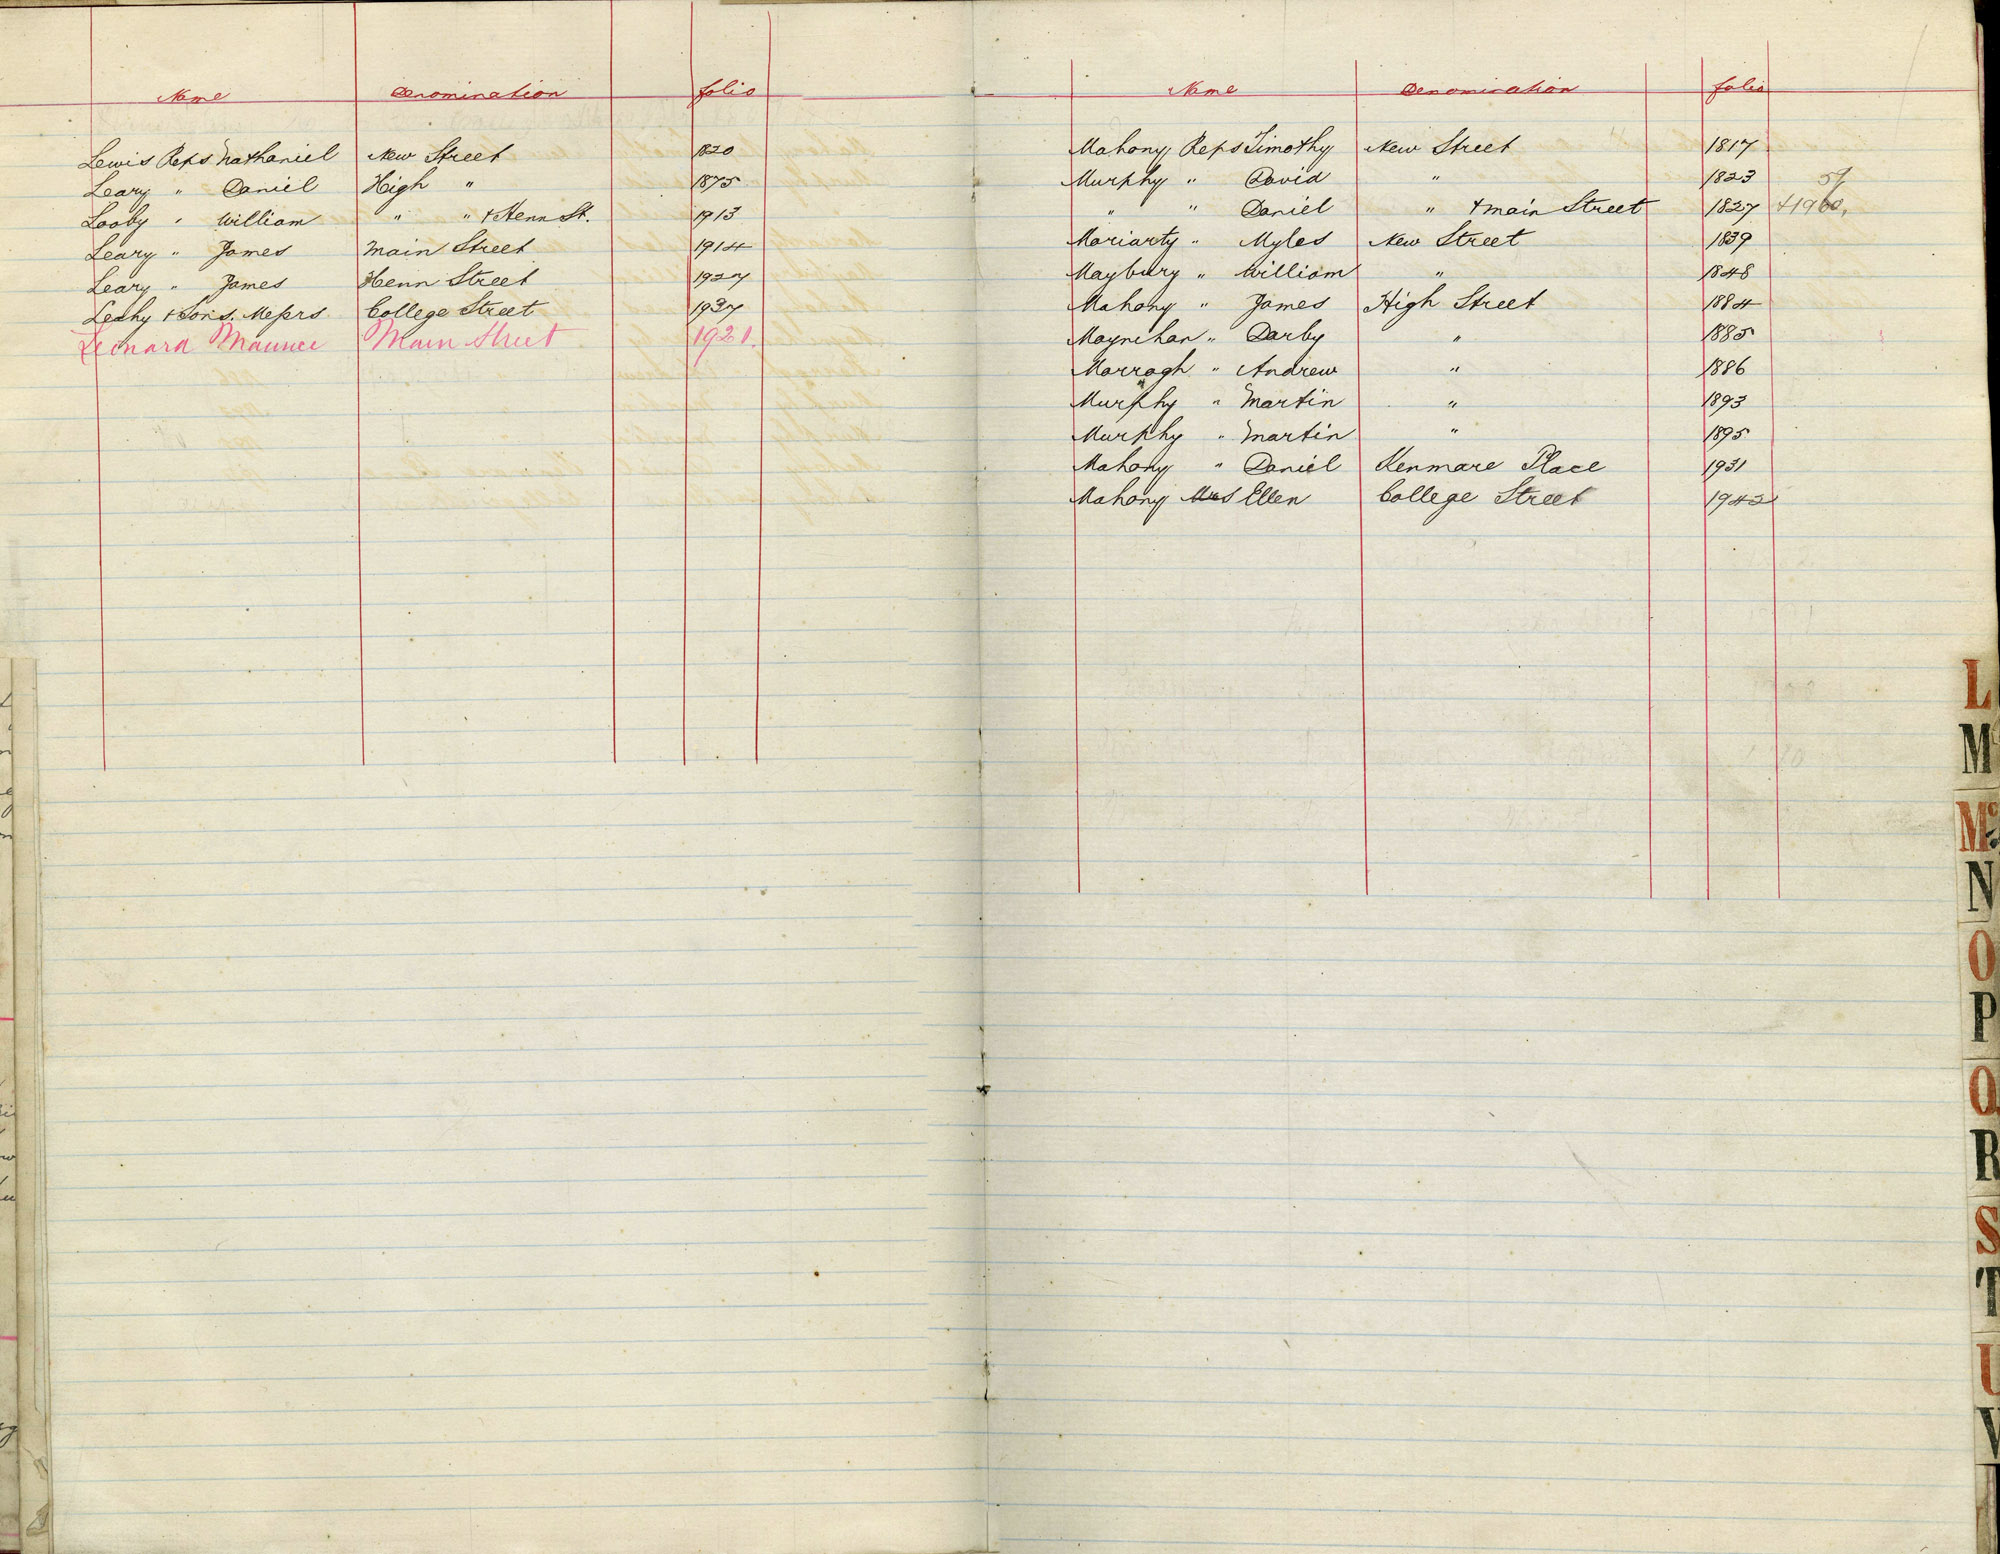 Name Denomination folio
Lewis Reps Nathaniel New Street 1820
Leary " Daniel High " 1875
Looby " William " " + Henn St. 1913
Leary " James Main Street 1914
Leary " James Henn Street 1927
Leahy + Sons. Messrs College Street 1937
Leonard Maurice Main Street 1921.
Name Denomination folio
Mahony Reps Timothy New Street 1817
Murphy " David " 1823
" " Daniel " + Main Street 1827 +1960, 57
Moriarty " Myles New Street 1839
Maybury " William " 1848
Mahony " James High Street 1884
Moynihan " Darby " 1885
Morrogh " Andrew " 1886
Murphy " Martin " 1893
Murphy " Martin " 1895
Mahony " Daniel Kenmare Place 1931
Mahony Mrs Ellen College Street 1942
L
M
Mc
N
O
P
Q
R
S
T
U
V